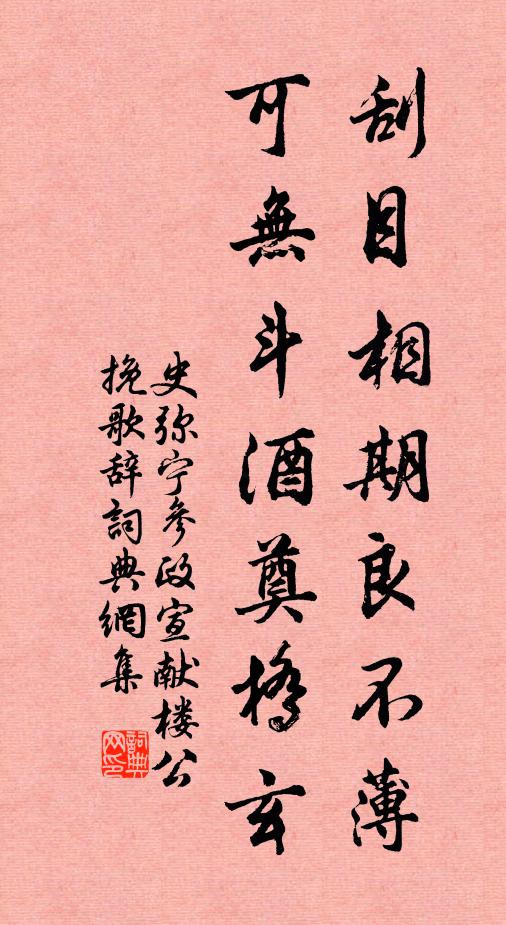 刮目相期良不薄
可無斗酒奠橋玄
史弥宁參政宣献楼公
挽歌辞詞典網集
詞典网印